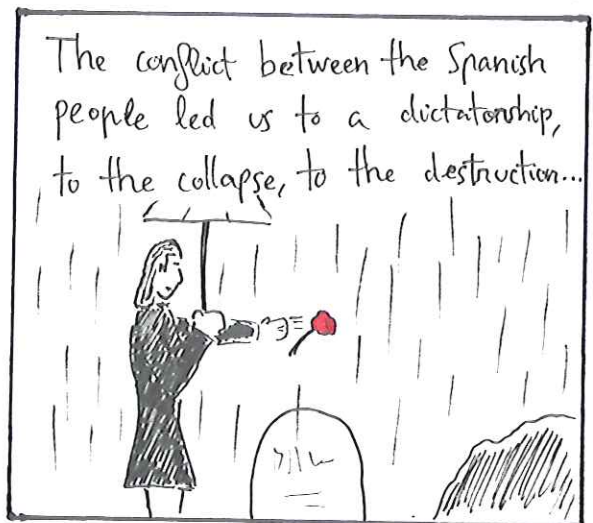 The conflict between the Spanish
people led us to a dictatorship,
to the collapse, to the destruction...